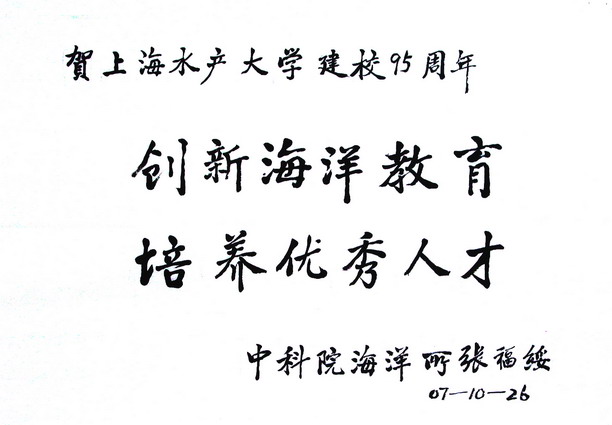 賀上海水产大学建校95周年
创新海洋教育
培养优秀人才
中科院海洋所张福绥
07-10-26